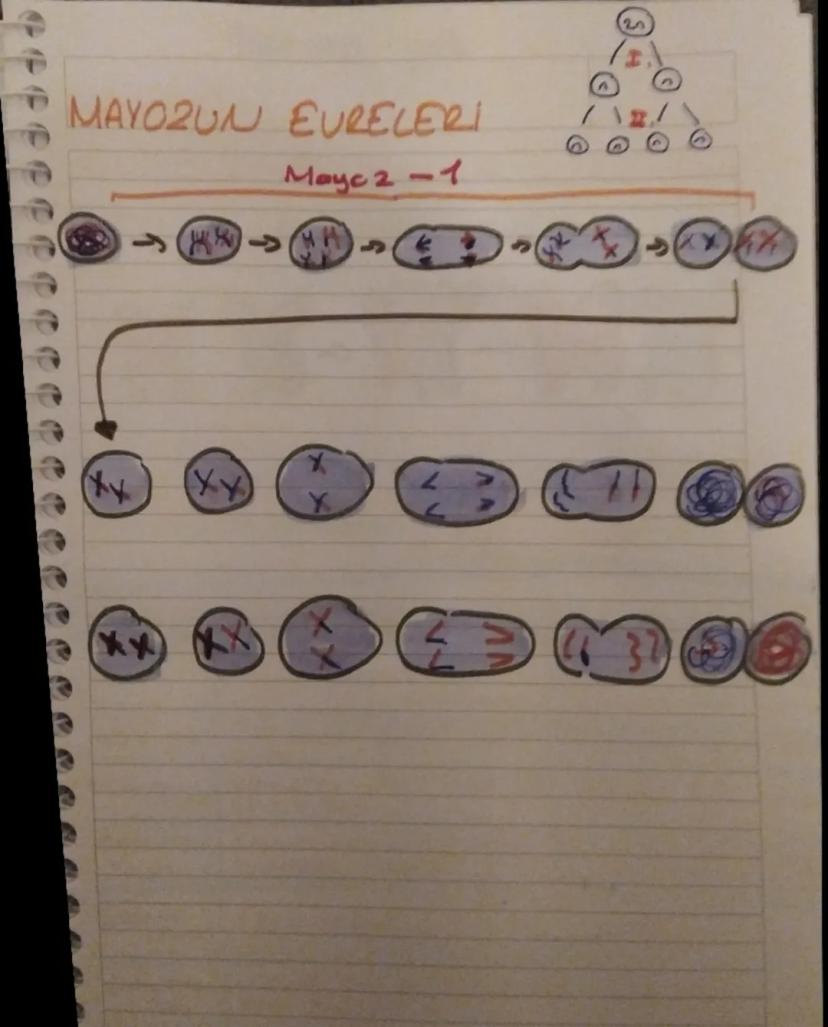 2n
I.
n n
MAYOZUN EVRELERİ
II.
n n n n
Mayoz - 1